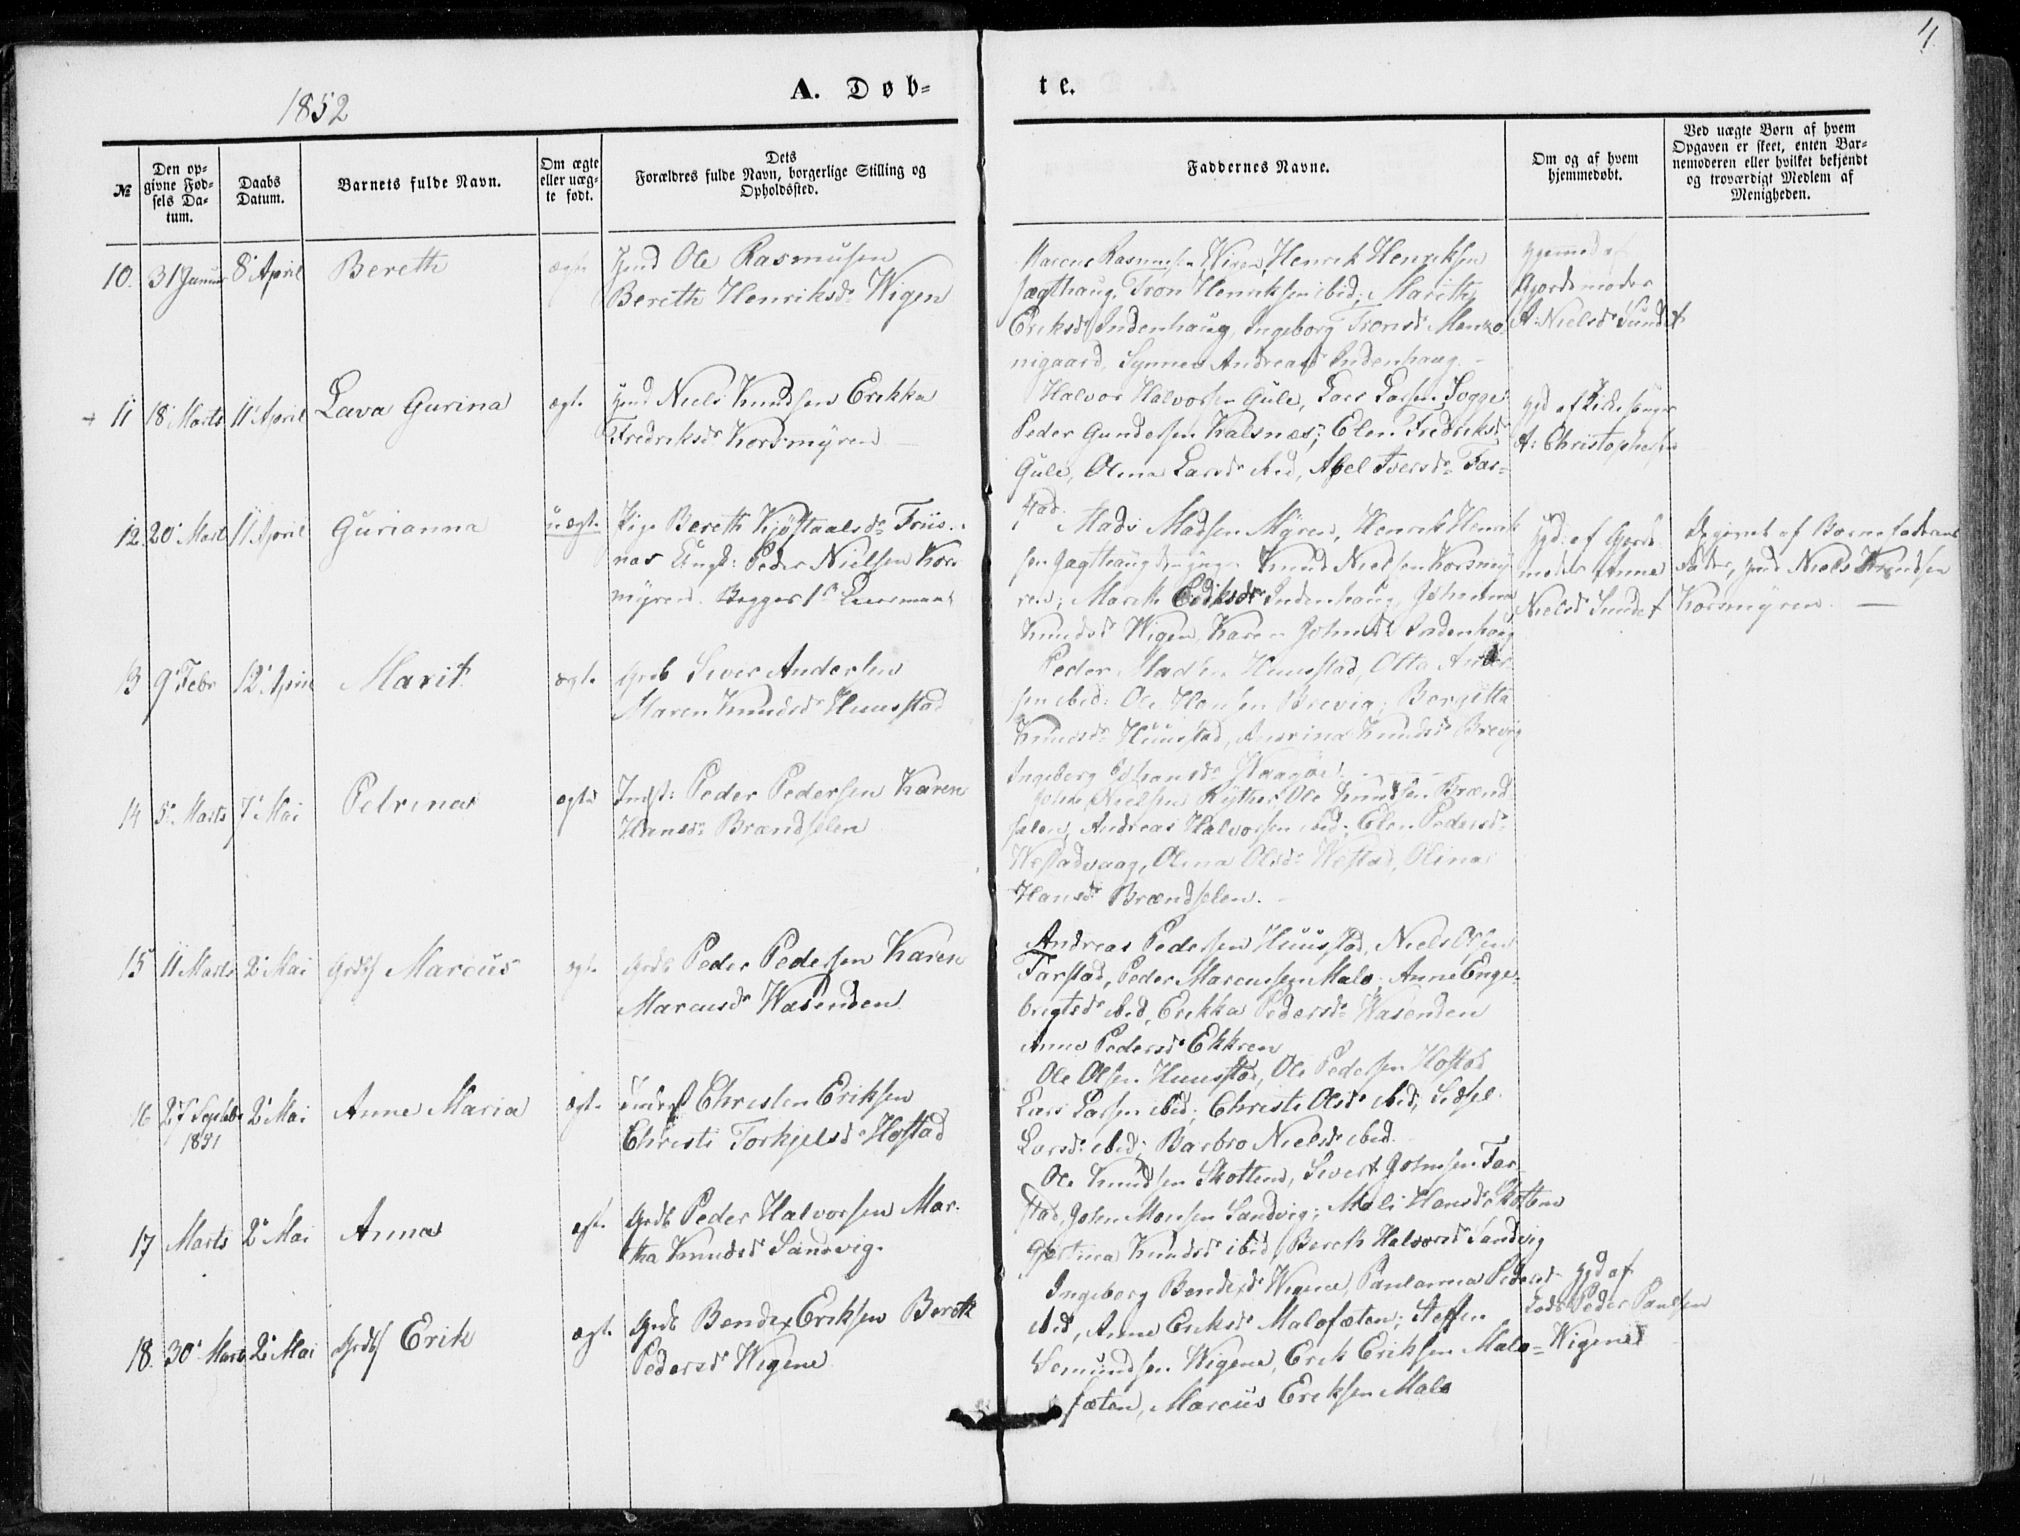 4
1852
A. Døb=
te.
№
Den op=
givne Fød=
sels Da=
tum.
Daabs
Datum.
Barnets fulde Navn.
Om ægte
eller uæg=
te født.
Dets
Forældres fulde Navn, borgerlige Stilling og
Opholdssted.
Faddernes Navne.
Om og af hvem
hjemmedøbt.
Ved uægte Børn af hvem
Opgaven er skeet, enten Bar=
nemoderen eller hvilket bekjendt
og troværdigt Medlem af
Menigheden.
10. 31 Januar 8 April Bereth ægte Ole Rasmusen
Bereth Henriksdr Wigen
Rasmusen Wigen, Henrik Henriksen
Jægthaug, Tron Henriksen ibid; Marith
Eriksdr Indenhaug, Ingeborg Tronsdr
nigaard, Synnev Andreasdr Indenhaug
Hjemmed af
Gjordemoder
A: Nielsdr Sundet
11 18 Marts 11 April Lava Gurina ægte Niels Knudsen Erikka
Fredriksdr Korsmyren
Halvor Halvorsen Gule, Lars Larsen Sogge
Peder Gundersen Kalsnæs; Elen Fredriksdr
Gule, Olina Larsdr ibid, Iversdr Far=
stad
hjd af Kirkesanger
A: Christophersen
12. 20 Marts 11 April Gurianna uægte Pige Bereth Kjøstaalsdr Friis=
næs Ungk: Peder Nielsen Kors
myren. Begges 1st Leiermaal
Mads Madsen Myren, Henrik Henrik
sen Jægthaug Knud Nielsen Korsmy
ren; Marith Eriksdr Indenhaug, Johanna
Knudsdr Wigen, Karen Johnsdr Indenhaug
hjd: af Gjorde
moder Anne
Nielsdr Sundet
Opgivet af Barnefaderens
Fader, Niels Knudsen
Korsmyren
13 9 Febr 12 April Marit ægte Grdb Siver Andersen
Maren Knudsdr Huustad
Peder Madsen Huustad, Otto Ander
sen ibid: Ole Hansen Brevig; Borgitta
Knudsdr Huustad, Knudsdr Brevig
Ingeborg
14 5 Marts 7 Mai Petrina ægte Indst: Peder Pedersen Karen
Hansdr Brændselen
John Nielsen Ole Knudsen Brænd
selen, Andreas Halvorsen ibid; Elen Pedersdr
Westadvaag, Olina Olsdr Westad, Olina
Hansdr Brændselen.
15 11 Marts 2 Mai Marcus ægte Grdb Peder Pedersen Karen
Marcusdr Wasenden
Andreas Pedersen Huustad, Niels Olsen
Farstad, Peder Marcussen Malo; Anne Enge=
brigtsdr ibid, Erikka Pedersdr Wasenden
Anne Pedersdr Ekkren
16 27 Septbr
1851
2 Mai Anne Maria ægte Christen Eriksen
Christi Torkjelsdr Hostad
Ole Olsen Huustad, Ole Pedersen Hostad
Lars Larsen ibid; Christi Olsdr ibid, Sidsel
Larsdr ibid; Barbro Nielsdr ibid.
17 Marts 2 Mai Anna ægte Grdb Peder Halvorsen Mar=
tha Knudsdr Sandvig.
Ole Knudsen Skotten, Sivert Johnsen Far
stad, John Monsen Sandvig; Mali Hansdr Skotten
Knudsdr ibid, Bereth Halvorsdr Sandvig
18. 30 Marts 2 Mai Erik ægte Grdb Bendix Eriksen Bereth
Pedersdr Wigene
Ingeborg Bendixdr Wigene, Paulanna Pedersdr
ibid, Anne Eriksdr Malofæten; Steffen
Wigene, Erik Eriksen Malo=
fæten, Marcus Eriksen Malo
hjd af
Peder Paulsen
Wigene